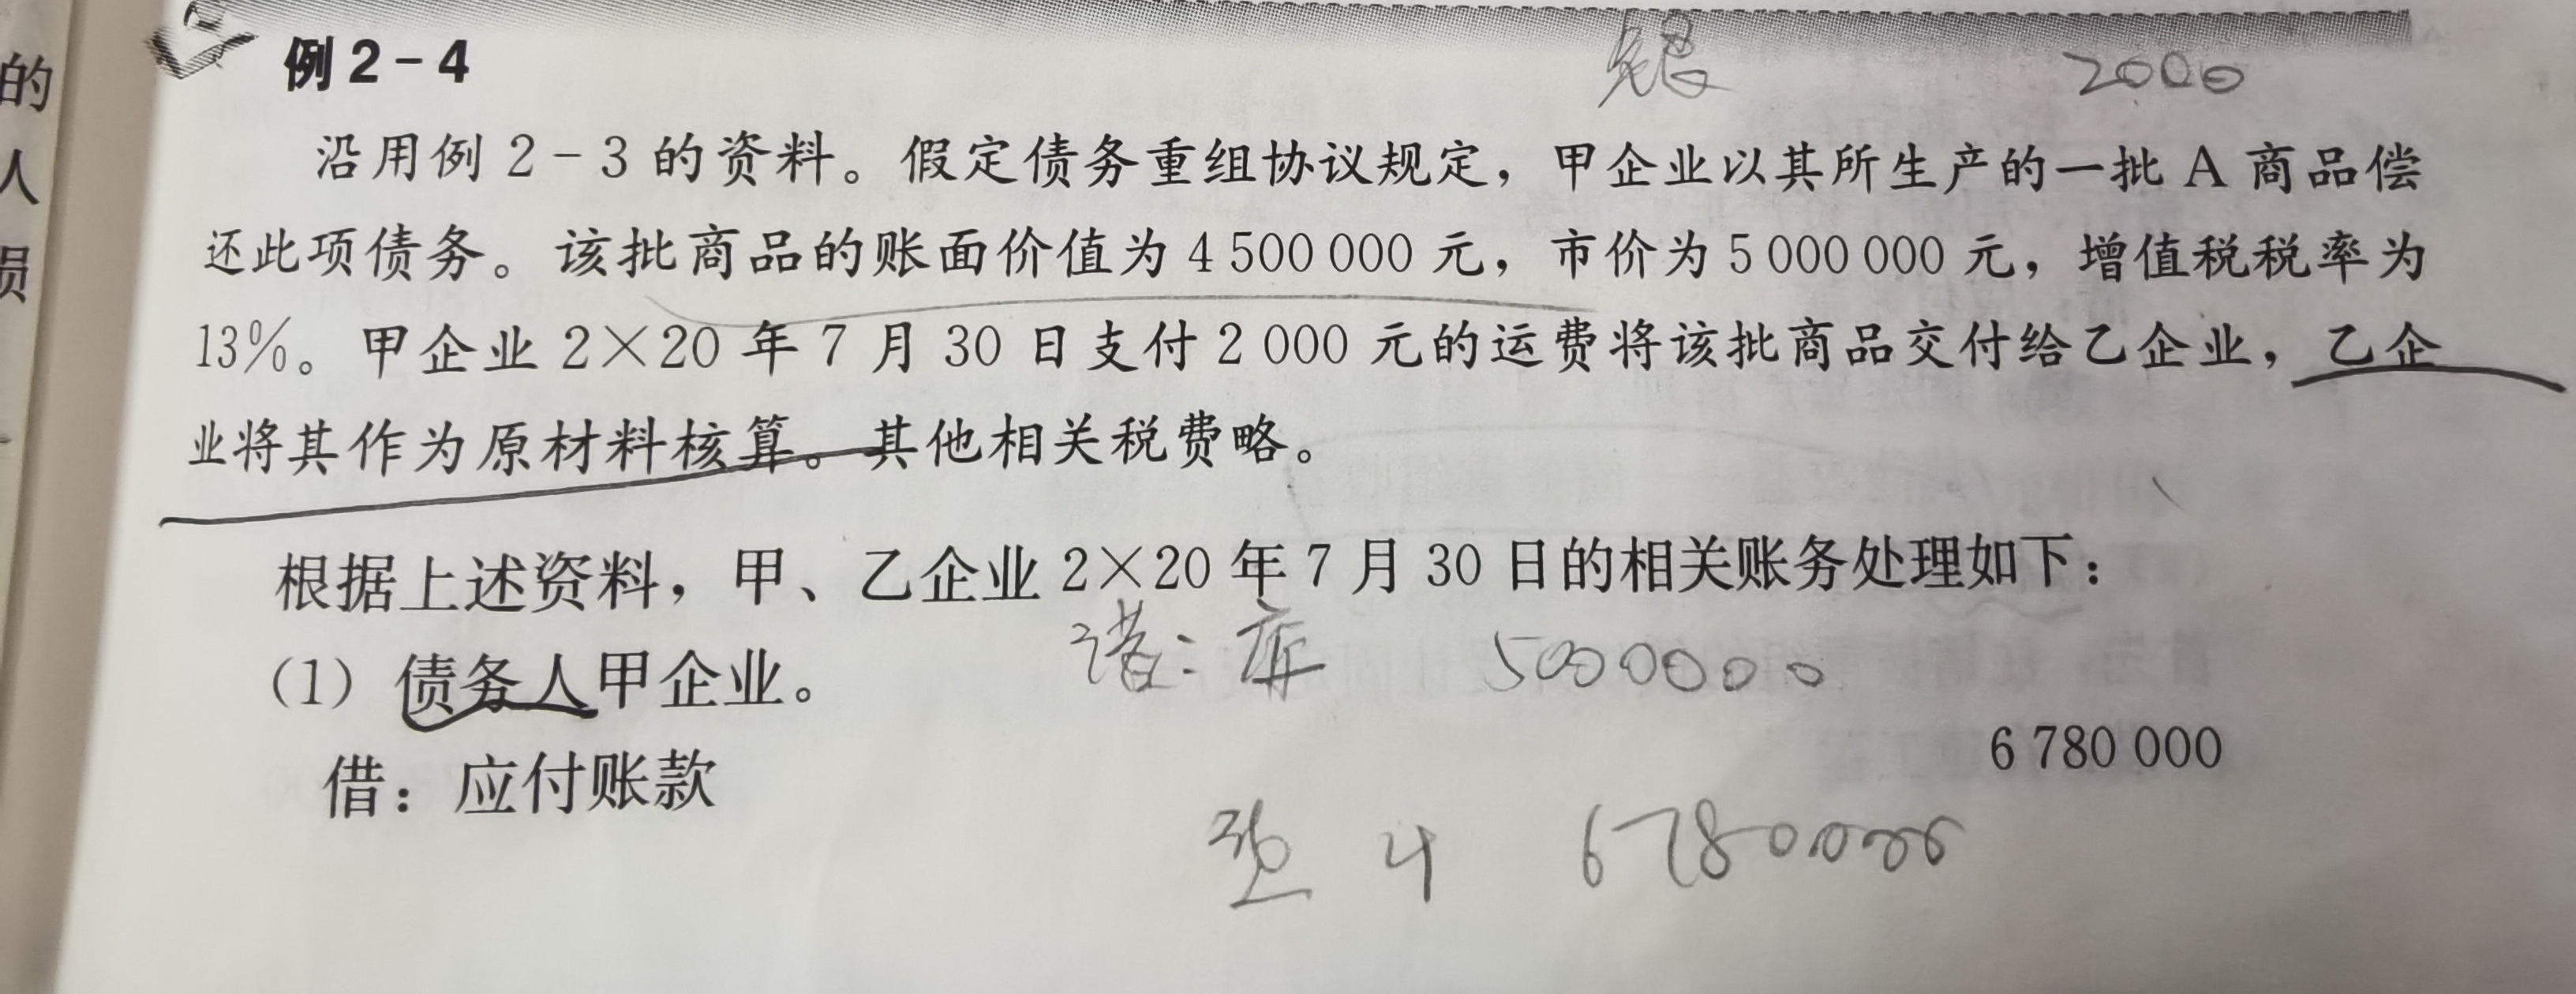 的
人
损
例2-4
银 2000
沿用例 2-3 的资料。假定债务重组协议规定，甲企业以其所生产的一批 A 商品偿
还此项债务。该批商品的账面价值为 4 500 000 元，市价为 5 000 000 元，增值税税率为
13%。甲企业 2×20 年 7 月 30 日支付 2 000 元的运费将该批商品交付给乙企业，乙企
业将其作为原材料核算。其他相关税费略。
根据上述资料，甲、乙企业 2×20 年 7 月 30 日的相关账务处理如下：
库 5000000
（1）债务人甲企业。
借：应付账款 6 780 000
6780000